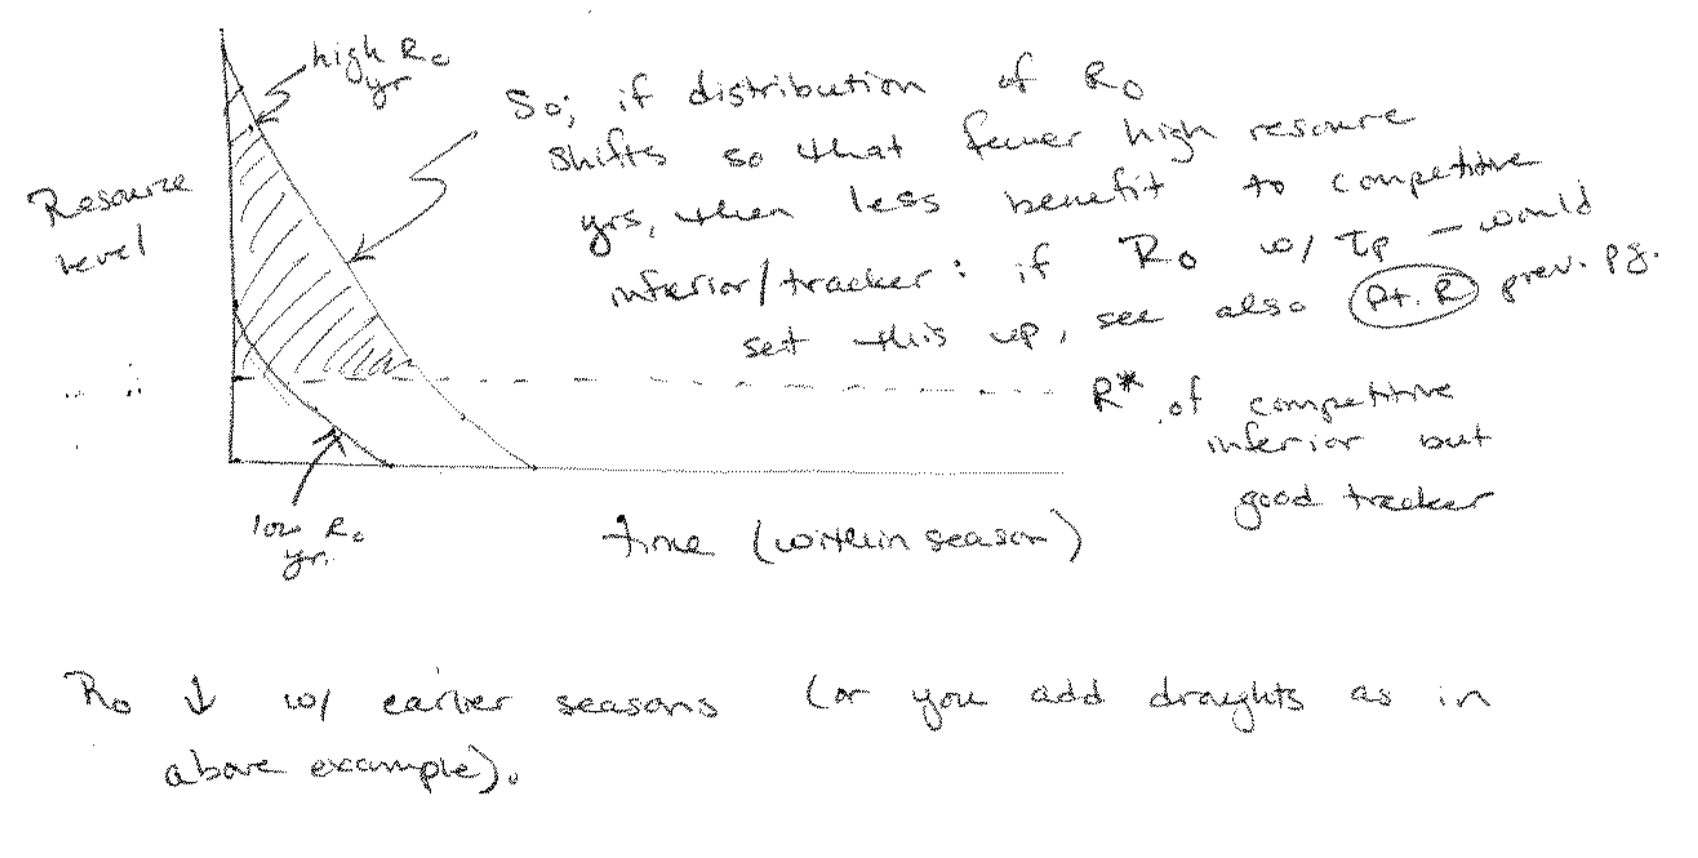 high Ro
yr
So; if distribution of Ro
shifts so that fewer high resource
yrs, then less benefit to competitive
inferior/tracker: if Ro w/ τp – would
set this up, see also Pt. R prev. pg.
Resource
level
R* of competitive
inferior but
good tracker
low Ro
yr.
time (within season)
Ro ↓ w/ earlier seasons (or you add droughts as in
above example).